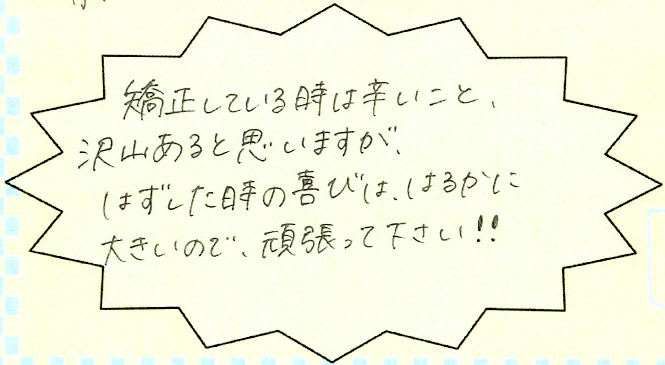 矯正している時は辛いこと、
沢山あると思いますが、
はずした時の喜びは、はるかに
大きいので、頑張って下さい!!